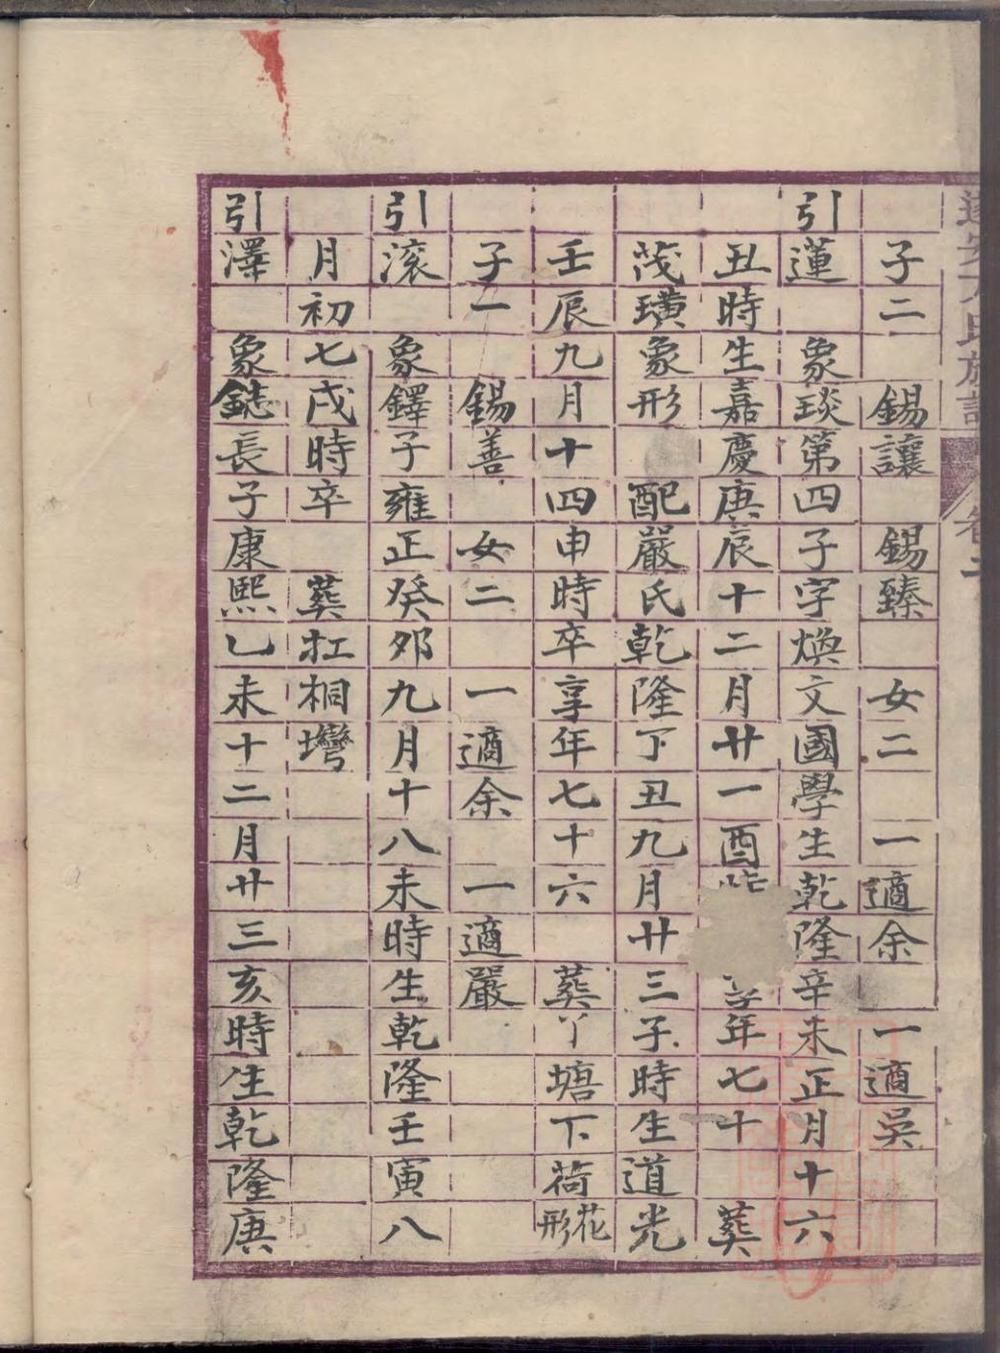 子二 錫讓 錫臻 女二 一適余 一適吳
引蓮 象琰第四子字煥文國學生乾隆辛未正月十六
丑時生嘉慶庚辰十二月廿一酉 年七十 葬
茂璜象形 配嚴氏乾隆丁丑九月廿三子時生道光
壬辰九月十四申時卒享年七十六 葬丫塘下荷花形
子一 錫善 女二 一適余 一適嚴
引滚 象鐸子雍正癸夘九月十八未時生乾隆壬寅八
月初七戌時卒 葬扛桐壪
引澤 象鋕長子康熙乙未十二月廿三亥時生乾隆庚